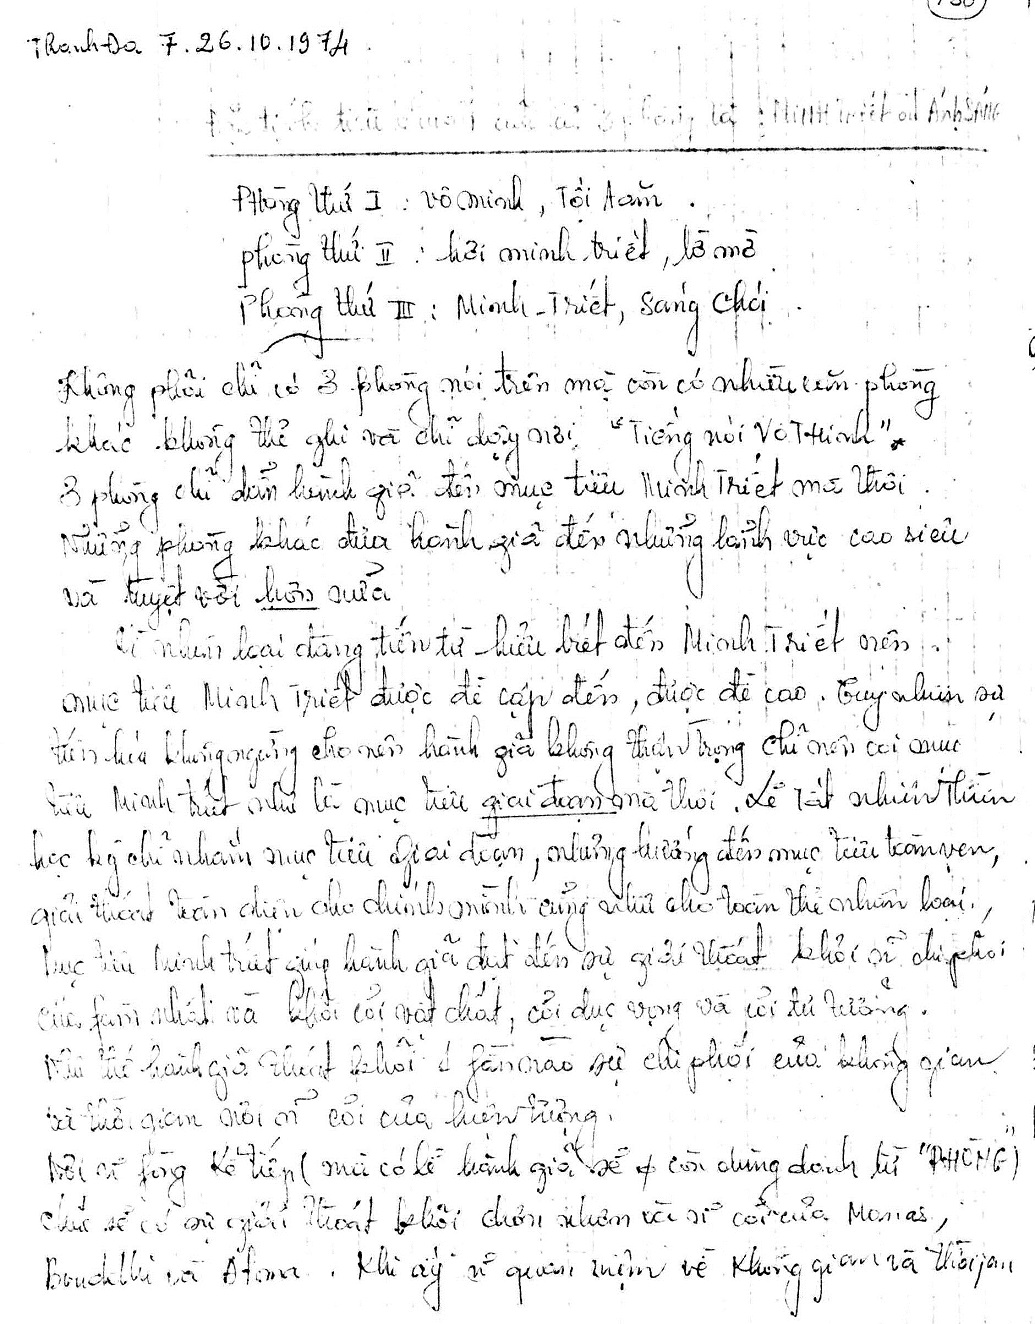 Thanh Đa 7.26.10.1974
MINH Triết ánh SÁNG
Phòng thứ I : vô minh, Tối tăm .
phòng thứ II : hơi minh triết, lờ mờ
Phòng thứ III : Minh-Triết, Sáng Chói .
Không phải chỉ có 3 phòng nói trên mà còn có nhiều căn phòng
khác không thể ghi và chỉ dạy nơi "Tiếng nói Vô Thinh".
3 phòng chỉ dẫn hành giả đến mục tiêu Minh Triết mà thôi .
Những phòng khác đưa hành giả đến những lãnh vực cao siêu
và tuyệt vời hơn nữa
Vì nhân loại đang tiến từ hiểu biết đến Minh Triết nên
mục tiêu Minh Triết được đề cập đến, được đề cao. Tuy nhiên sự
tiến hóa không ngừng cho nên hành giả không thận trọng chỉ nên coi mục
tiêu Minh triết như là mục tiêu giai đoạn mà thôi. Lẽ tất nhiên Thần
học kỳ chỉ nhắm mục tiêu giai đoạn, nhưng hướng đến mục tiêu toàn vẹn,
giải thoát toàn diện cho chính mình cũng như cho toàn thể nhân loại.,
Mục tiêu Minh triết giúp hành giả đạt đến sự giải thoát khỏi sĩ chi phối
của fàm nhất và khỏi cõi vật chất, cõi dục vọng và cõi tư tưởng.
Như thế hành giả thoát khỏi 1 fần nào sự chi phối của không gian
và thời gian nơi sĩ cõi của hiện tượng.
Nơi sĩ fòng kế tiếp (mà có lẽ hành giả sẽ 0 còn dùng danh từ "PHÒNG")
chắc sẽ có sự giải thoát khỏi chơn nhơn và sĩ cõi của Manas,
Bouddhi và Atma. Khi ấy sĩ quan niệm về không gian và thời jan